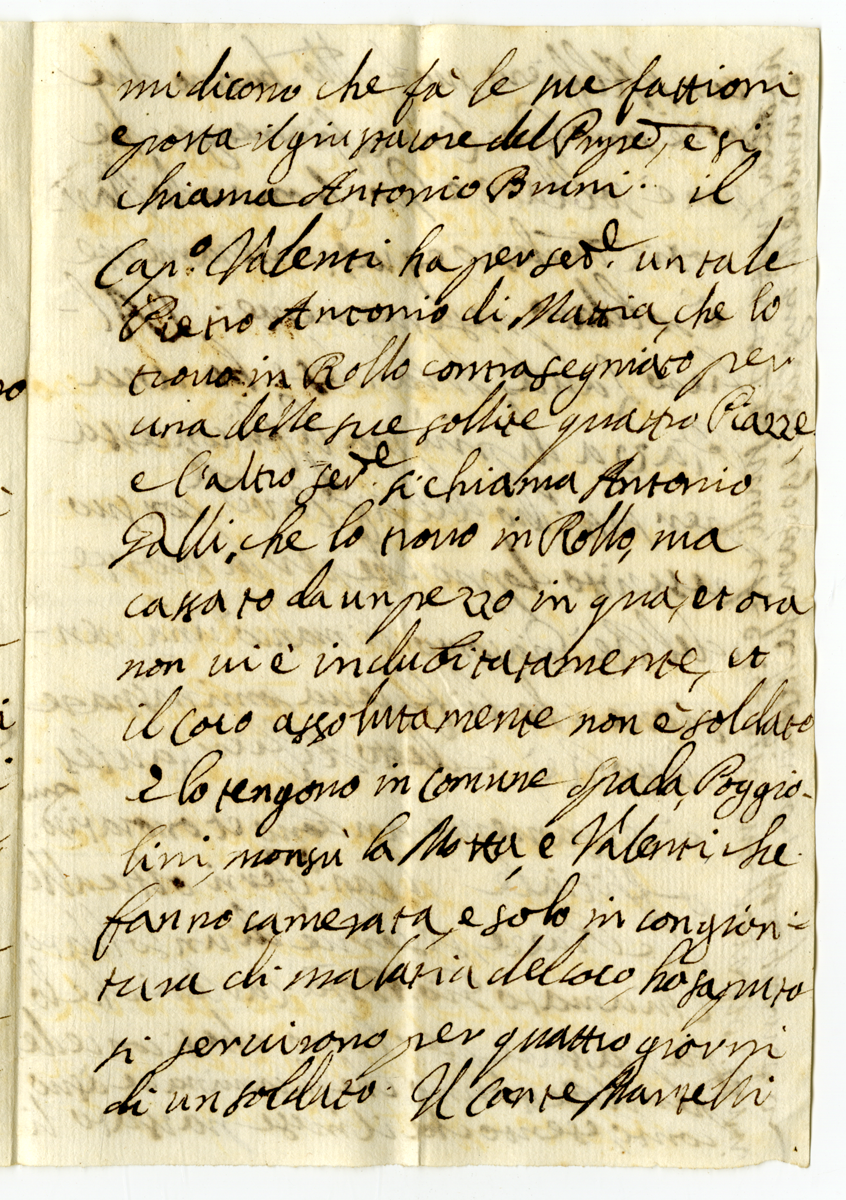 mi dicono che fà le sue fattioni
e porta il giustacore del Prnpe, e si
chiama Antonio Bruni. il
Capno. Valenti ha per serre. un tale
Pietro Antonio di Mattia, che lo
trovo in Rollo contrasegniato per
una delle sue sollite quattro Piazze,
e l'altro serre. si chiama Antonio
Galli, che lo trovo in Rollo, ma
cassato da un pezzo in quà, et ora
non vi è indubitatamente, et
il coco assolutamente non è soldato
e lo tengono in comune Spada, Poggio-
lini, monsù la Motta, e Valenti, che
fanno camerata, e solo in congion-
tura di malatia del coco, hò saputo
si servirono per quattro giorni
di un soldato. Il Conte Martelli